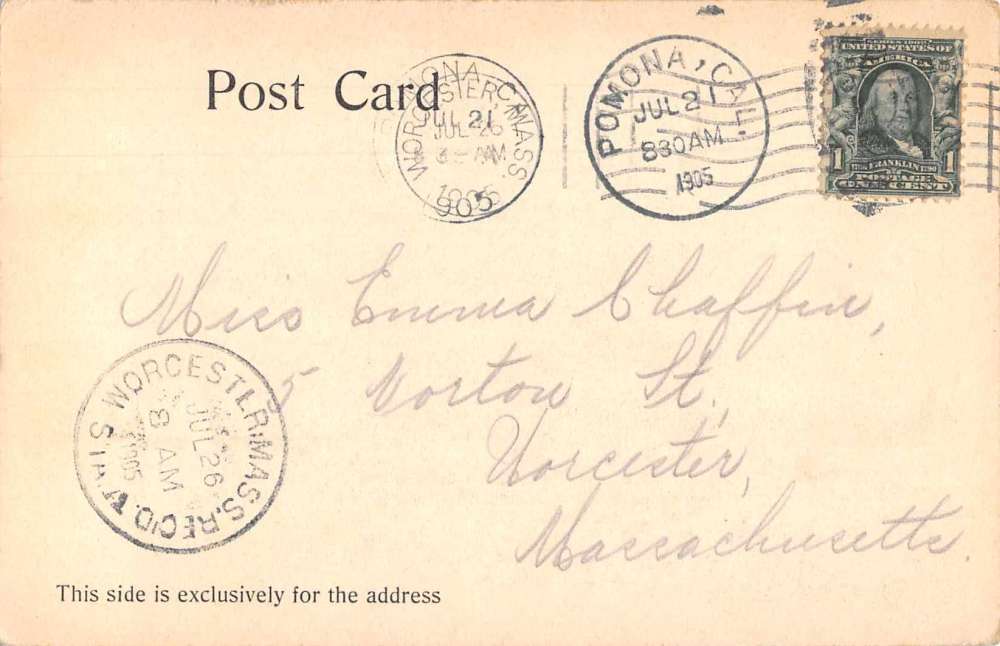 Post Card
POMONA, CAL.
JUL 21
830AM
1905
WORCESTER, MASS.
JUL 26
1905
SERIES 1902
UNITED STATES OF
AMERICA
1706 FRANKLIN 1790
1 POSTAGE 1
ONE CENT
Miss Emma Chaffin,
5 Norton St,
Worcester,
Massachusetts.
WORCESTER, MASS. REC'D.
JUL 26
8 AM
1905
This side is exclusively for the address